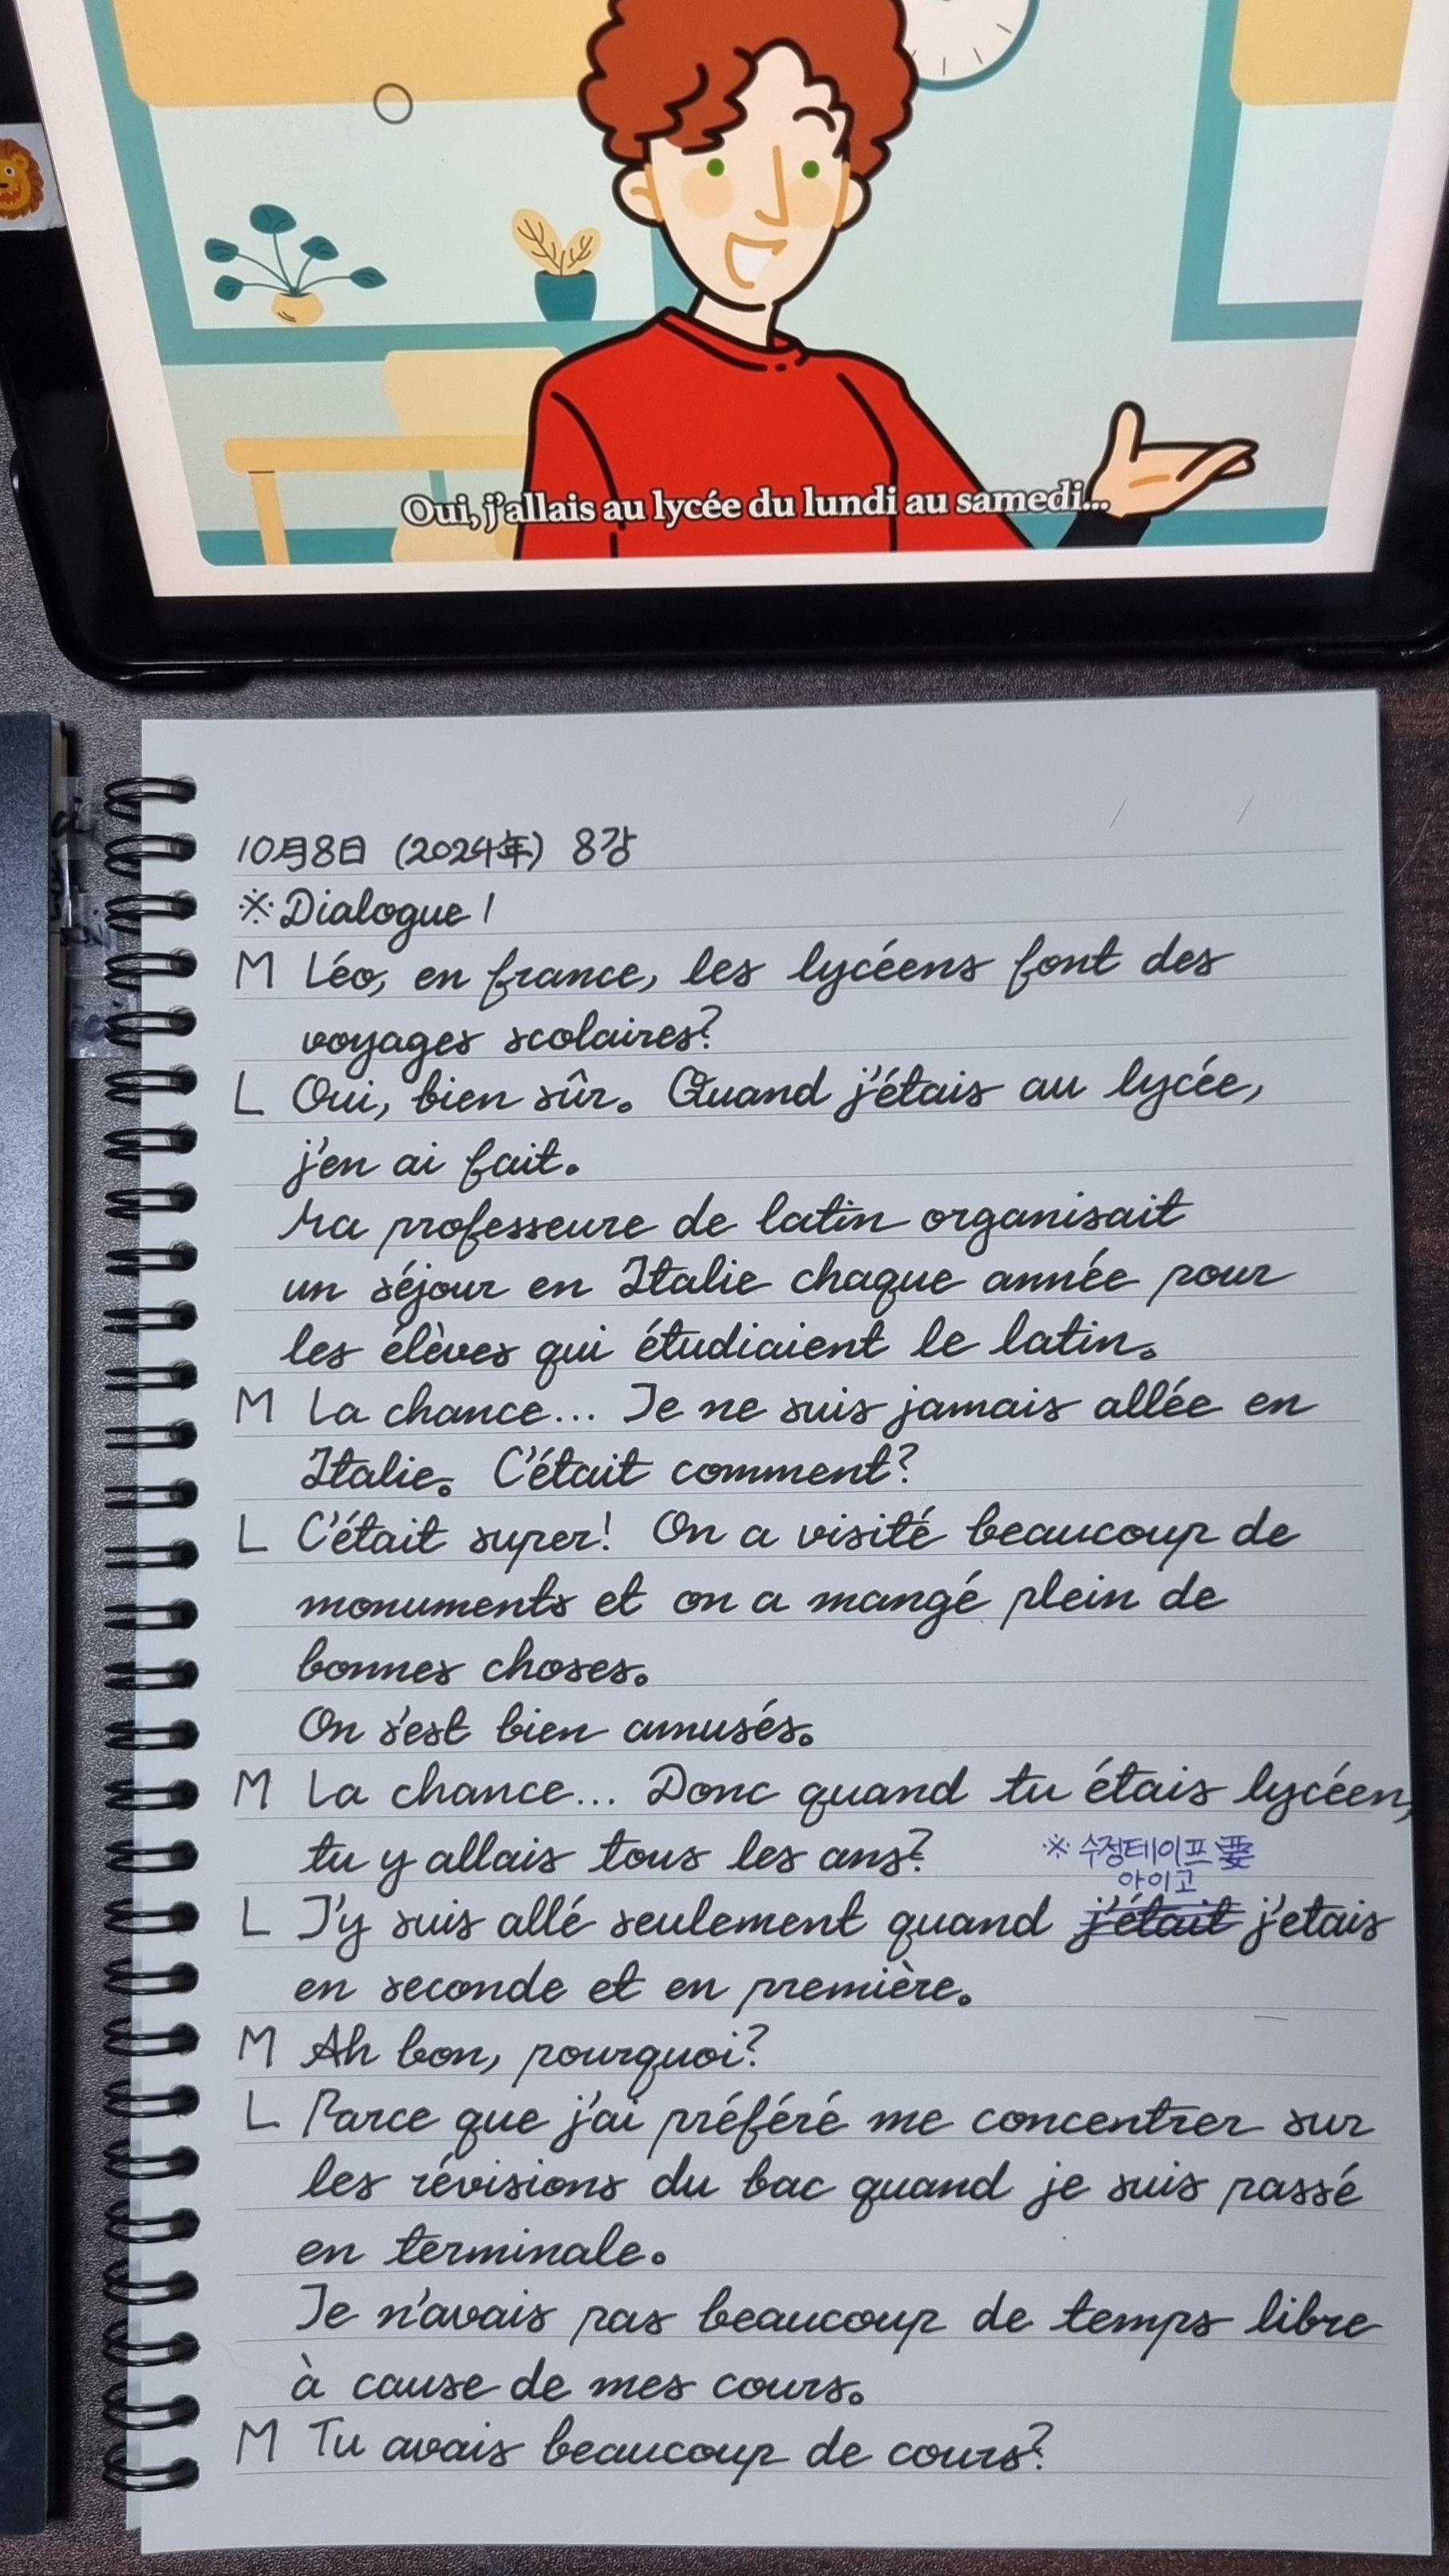 Oui, j'allais au lycée du lundi au samedi...
10月8日 (2024年) 8강
※Dialogue 1
M Léo, en france, les lycéens font des
voyages scolaires?
L Oui, bien sûr. Quand j'étais au lycée,
j'en ai fait.
Ma professeure de latin organisait
un séjour en Italie chaque année pour
les élèves qui étudiaient le latin.
M La chance... Je ne suis jamais allée en
Italie. C'était comment?
L C'était super! On a visité beaucoup de
monuments et on a mangé plein de
bonnes choses.
On s'est bien amusés.
M La chance... Donc quand tu étais lycéen,
tu y allais tous les ans?
※ 수정테이프
아이고
L J'y suis allé seulement quand j'était j'etais
en seconde et en première.
M Ah bon, pourquoi?
L Parce que j'ai préféré me concentrer sur
les révisions du bac quand je suis passé
en terminale.
Je n'avais pas beaucoup de temps libre
à cause de mes cours.
M Tu avais beaucoup de cours?